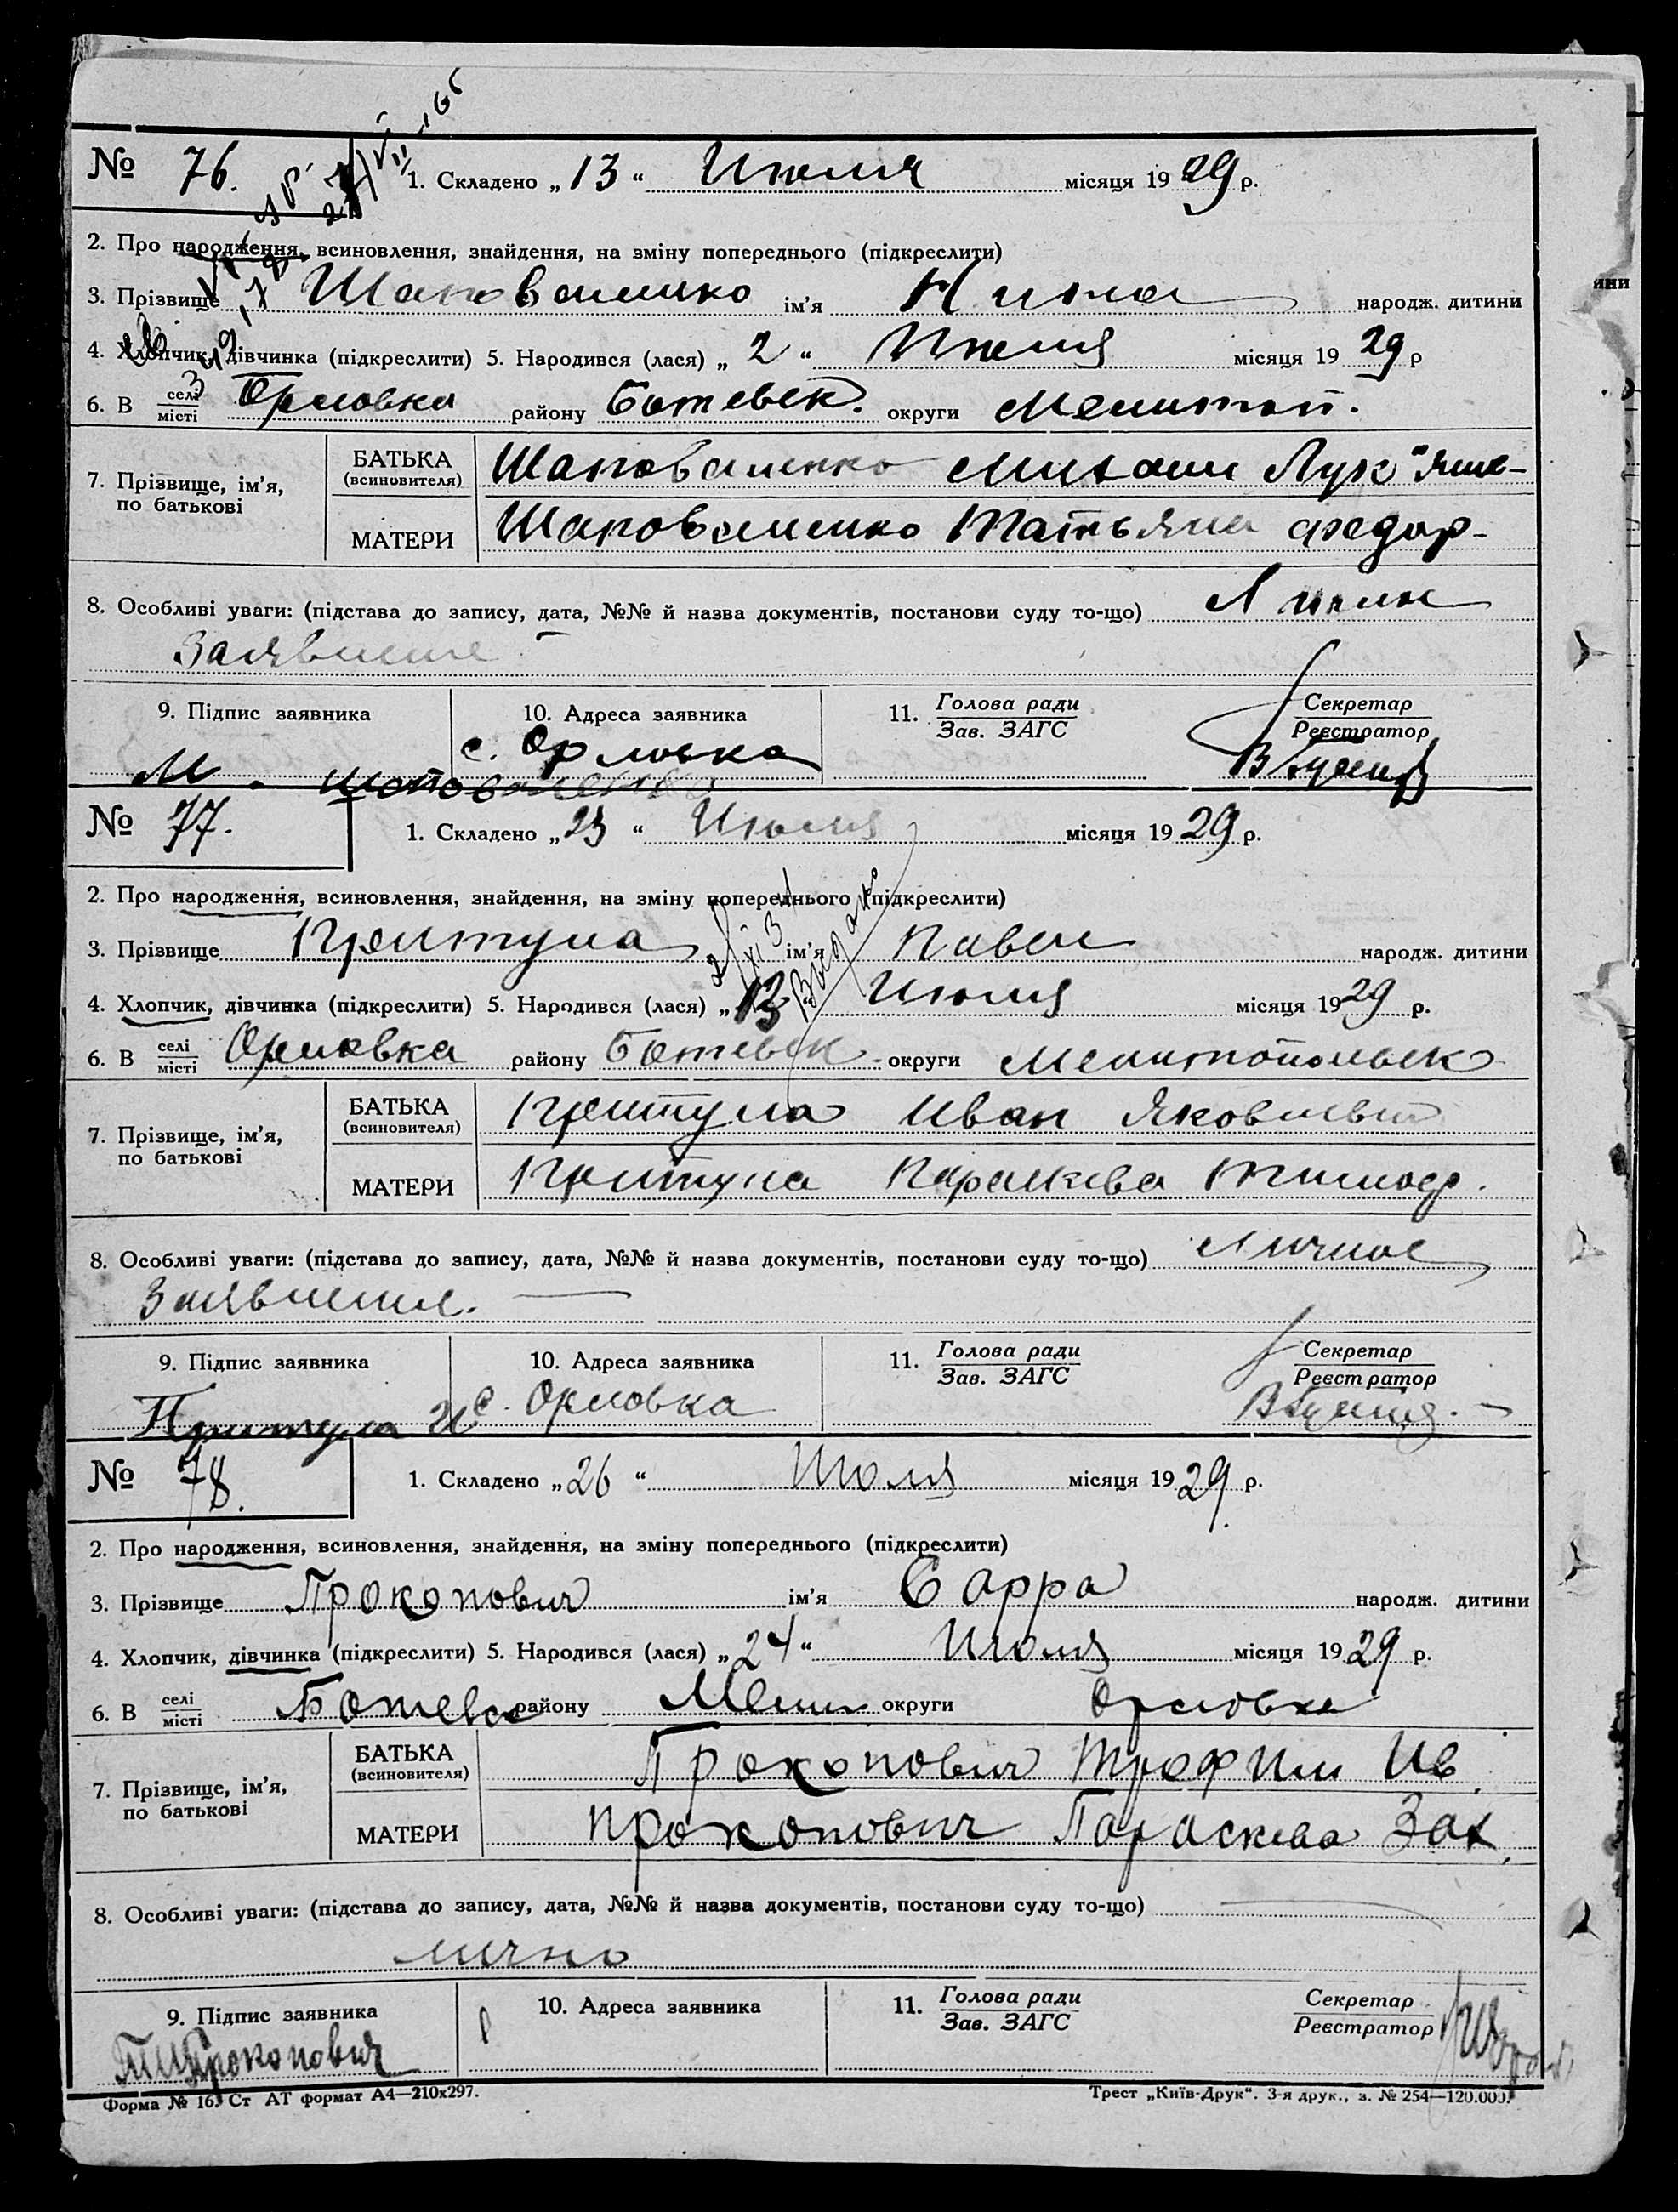 № 76. 1. Складено „13“ Июля місяця 1929 р.
2. Про народження, всиновлення, знайдення, на зміну попереднього (підкреслити)
3. Прізвище Шаповаленко ім'я Нина народж. дитини
4. Хлопчик, дівчинка (підкреслити) 5. Народився (лася) „2“ Июля місяця 1929 р
6. В селі/місті Орловка району Ботевск. округи Мелитоп.
7. Прізвище, ім'я, по батькові
БАТЬКА (всиновителя) Шаповаленко Михаил Лук"яно-
МАТЕРИ Шаповаленко Татьяна Федор-
8. Особливі уваги: (підстава до запису, дата, №№ й назва документів, постанови суду то-що)
Заявление
9. Підпис заявника 10. Адреса заявника 11. Голова ради/Зав. ЗАГС Секретар/Реєстратор
с. Орловка
М. Шаповаленко
№ 77. 1. Складено „23“ Июля місяця 1929 р.
2. Про народження, всиновлення, знайдення, на зміну попереднього (підкреслити)
3. Прізвище Притула ім'я Павел народж. дитини
4. Хлопчик, дівчинка (підкреслити) 5. Народився (лася) „13“ Июля місяця 1929 р.
6. В селі/місті Орловка району Ботевск округи Мелитопольск
7. Прізвище, ім'я, по батькові
БАТЬКА (всиновителя) Притула Иван Яковлевич
МАТЕРИ Притула Параскева Тимоф.
8. Особливі уваги: (підстава до запису, дата, №№ й назва документів, постанови суду то-що) Личное
Заявление.
9. Підпис заявника 10. Адреса заявника 11. Голова ради/Зав. ЗАГС Секретар/Реєстратор
Притула И с. Орловка
№ 78. 1. Складено „26“ Июля місяця 1929 р.
2. Про народження, всиновлення, знайдення, на зміну попереднього (підкреслити)
3. Прізвище Прокопович ім'я Сарра народж. дитини
4. Хлопчик, дівчинка (підкреслити) 5. Народився (лася) „24“ Июля місяця 1929 р.
6. В селі/місті Ботевск району Мелит округи Орловка
7. Прізвище, ім'я, по батькові
БАТЬКА (всиновителя) Прокопович Трофим Ив.
МАТЕРИ Прокопович Параскева Зах.
8. Особливі уваги: (підстава до запису, дата, №№ й назва документів, постанови суду то-що)
лично
9. Підпис заявника 10. Адреса заявника 11. Голова ради/Зав. ЗАГС Секретар/Реєстратор
Прокопович
Форма № 16. Ст АТ формат А4—210х297. Трест „Київ-Друк“. 3-я друк., з. № 254—120.000.